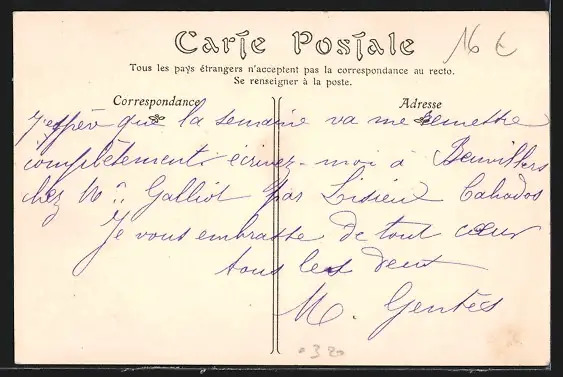 Carte Postale
16 €
Tous les pays étrangers n'acceptent pas la correspondance au recto.
Se renseigner à la poste.
Correspondance
Adresse
J'espère que la semaine va me remettre
complètement écrivez-moi à Beuvillers
chez M Galliot par Lisieux Calvados
Je vous embrasse de tout cœur
tous les deux
M. Gentès
320